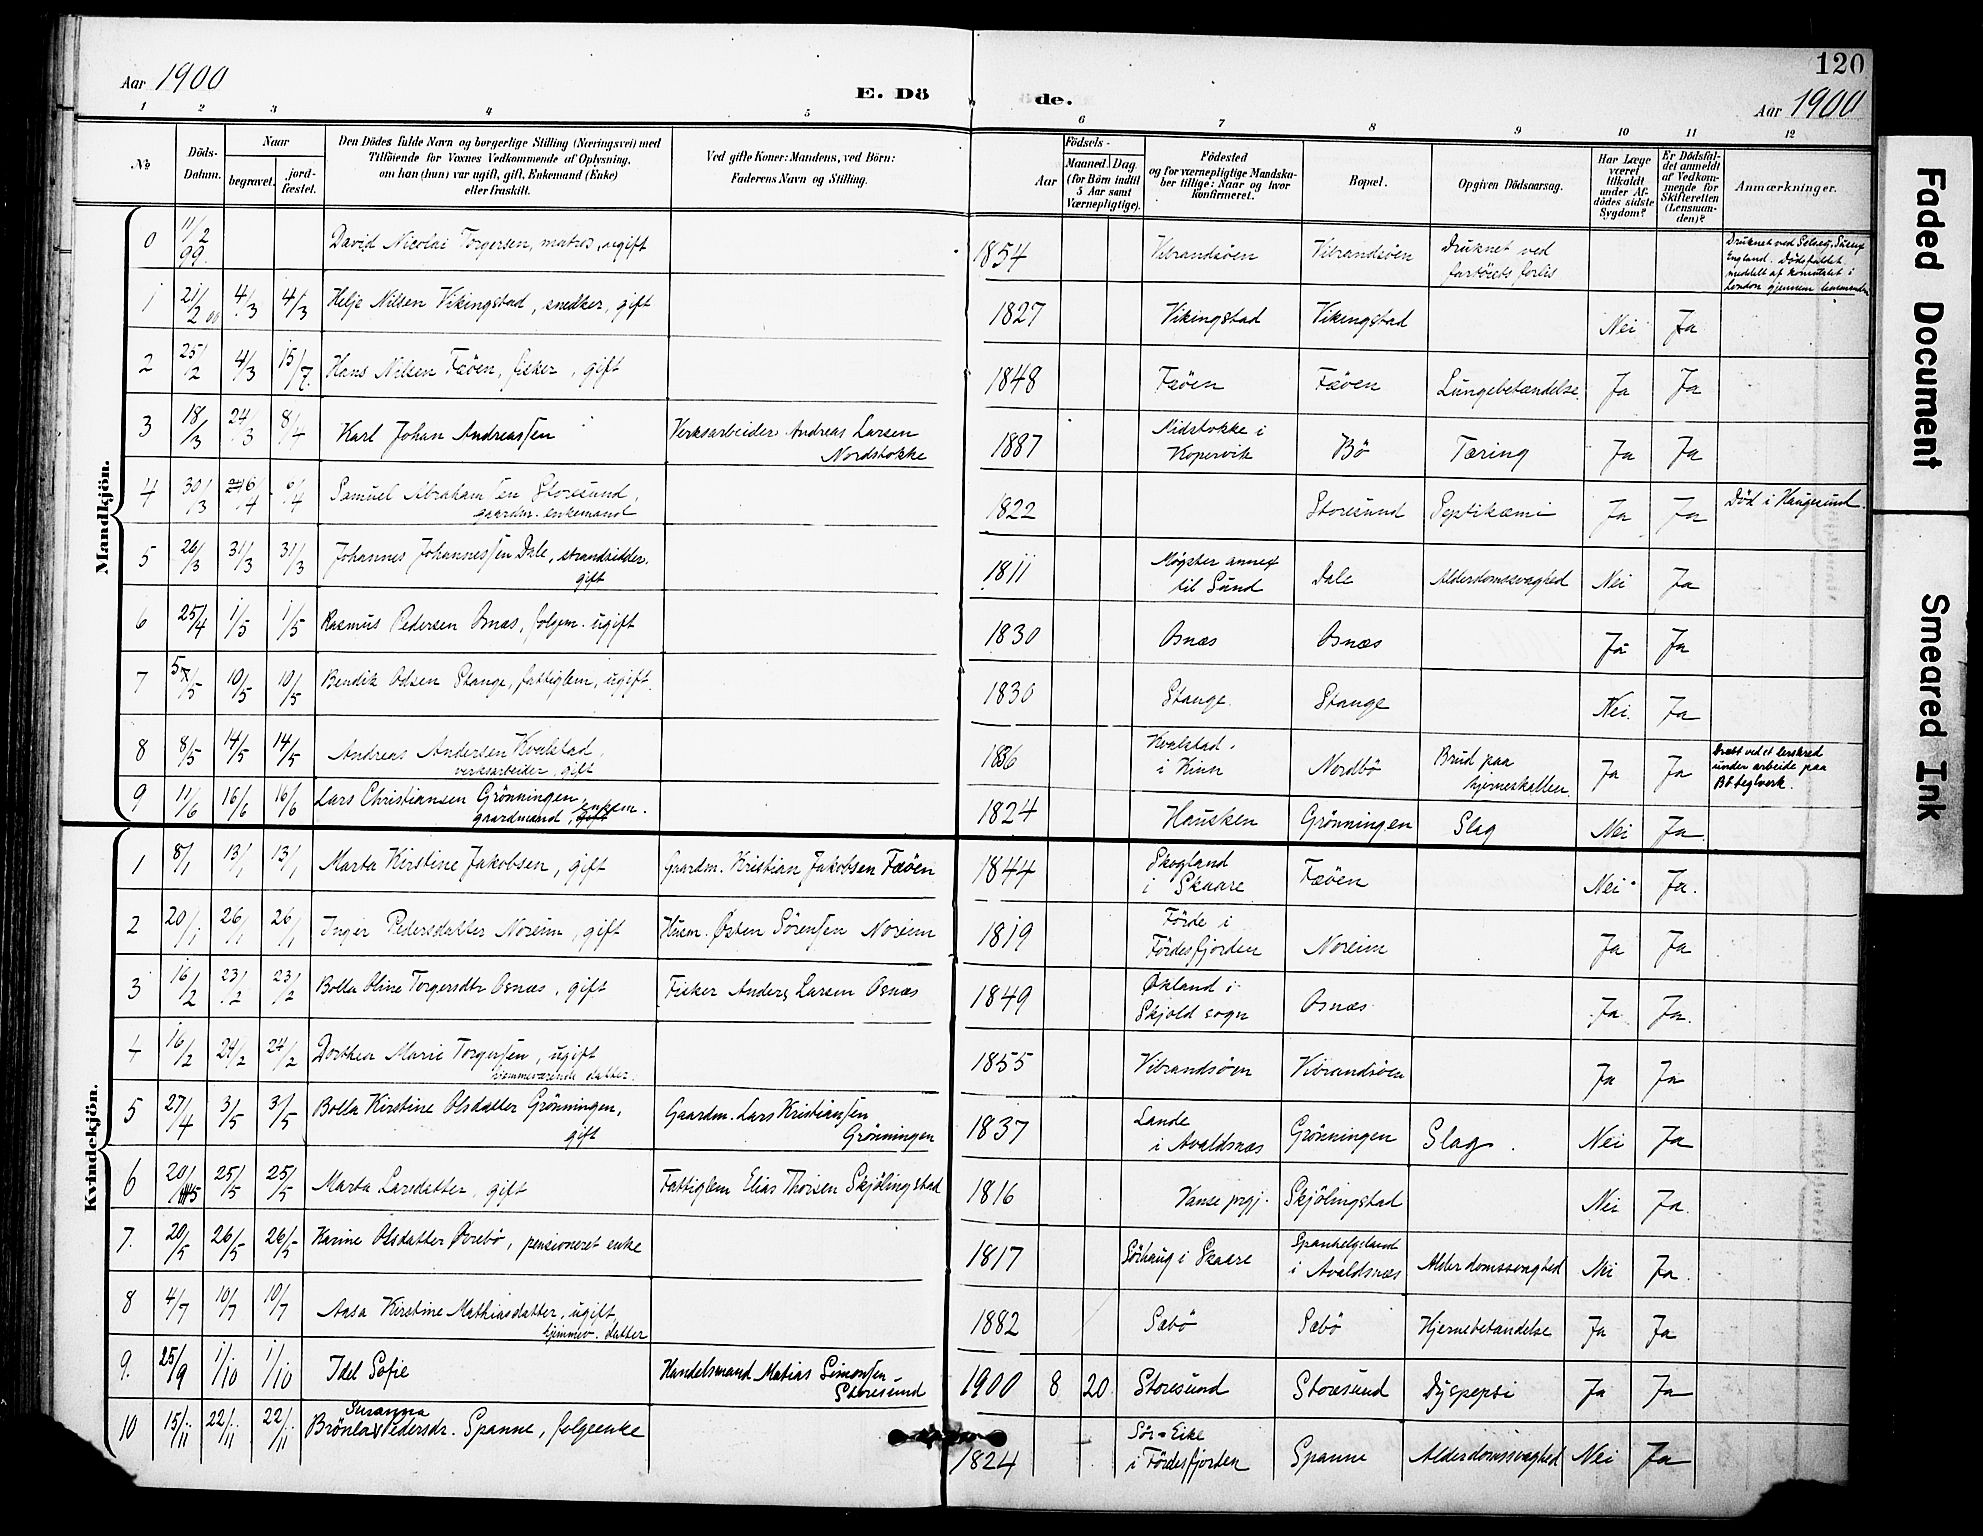 120
Aar 1900
E. Dö
de.
Aar 1900
1 2 3 4 5 6 7 8 9 10 11 12
No
Döds-
Datum.
Naar
begravet.
jord-
fæstet.
Den Dödes fulde Navn og borgerlige Stilling (Næringsvei) med
Tilföiende for Voxnes Vedkommende af Oplysning,
om han (hun) var ugift, gift, Enkemand (Enke)
eller fraskilt.
Ved gifte Koner: Mandens, ved Börn:
Faderens Navn og Stilling.
Födsels-
Aar
Maaned. Dag
(for Börn indtil
5 Aar samt
Værnepligtige).
Födested
og for værnepligtige Mandska-
ber tillige: Naar og hvor
konfirmeret.
Bopæl.
Opgiven Dödsaarsag.
Har Læge
været
tilkaldt
under Af-
dödes sidste
Sygdom?
Er Dödsfal-
det anmeldt
af Vedkom-
mende for
Skifteretten
(Lensman-
den)?
Anmærkninger.
Mandkjön.
0 11/2 99. David Nicolai Torgersen, matros, ugift 1854 Vibrandsöen Vibrandsöen Druknet ved
fartöiets forlis
Druknet ved Selsey, Sussex
England. Dödsfaldet
meddelt af konsulatet i
London gjennem lensmanden
1 21/2 00 4/3 4/3 Helje Nilsen Vikingstad, snedker, gift 1827 Vikingstad Vikingstad Nei Ja
2 25/2 4/3 15/7. Hans Nilsen Fæöen, fisker, gift 1848 Fæöen Fæöen Lungebetændelse Ja Ja
3 18/3 24/3 8/4 Karl Johan Andreassen Verksarbeider Andreas Larsen
Nordstokke
1887 Nidstokke i
Kopervik
Bö Tæring Ja Ja
4 30/3 6/4 6/4 Samuel Abrahamsen Storesund,
gaardm. enkemand
1822 Storesund Septikæmi Ja Ja Död i Haugesund.
5 26/3 31/3 31/3 Johannes Johannessen Dale, strandsidder.
gift
1811 Møgster annex
til Sund
Dale Alderdomssvaghed Nei Ja
6 25/4 1/5 1/5 Rasmus Pedersen Osnæs, folgem. ugift 1830 Osnæs Osnæs Ja Ja
7 5/5 10/5 10/5 Bendik Olsen Stange, fattiglem, ugift. 1830 Stange Stange Nei. Ja
8 8/5 14/5 14/5 Andreas Andersen Kvalstad,
verksarbeider, gift
1836 Kvalstad
i Kinn
Nordbö Brud paa
hjerneskallen.
Ja Ja Dræbt ved et lerskred
under arbeide paa
Bö teglverk.
9 11/6 16/6 16/6 Lars Christiansen Grönningen
gaardmand, gift enkem.
1824 Hausken Grönningen Slag Nei Ja
Kvindekjön.
1 8/1 13/1 13/1 Marta Kirstine Jakobsen, gift Gaardm. Kristian Jakobsen Fæöen 1844 Skogland
i Skaare
Fæöen Nei Ja.
2 20/1 26/1 26/1 Inger Pedersdatter Noreim, gift Husm. Østen Sörensen Noreim 1819 Förde i
Fördesfjorden
Noreim Ja Ja
3 16/2 23/2 23/2 Bolla Oline Torgersdtr Osnæs, gift Fisker Anders Larsen Osnæs 1849 Øxland i
Skjold sogn
Osnæs Ja Ja.
4 16/2 24/2 24/2 Dorthea Marie Torgersen, ugift
hjemmeværende datter.
1855 Vibrandsöen Vibrandsöen Ja Ja
5 27/4 3/5 3/5 Bolla Kirstine Olsdatter Grönningen,
gift
Gaardm. Lars Kristiansen
Grönningen
1837 Lande
i Avaldsnæs
Grönningen Slag. Nei Ja
6 20/5 25/5 25/5 Marta Larsdatter, gift Fattiglem Elias Thorsen Skjölingstad 1816 Vanse prgj. Skjölingstad Nei Ja.
7. 20/5 26/5 26/5 Karine Olsdatter Övrebö, pensioneret enke 1817 Sörhaug i Skaare Spanhelgeland
i Avaldsnæs
Alderdomssvaghed Nei Ja.
8 4/7 10/7 10/7 Aasa Kirstine Mathiasdatter, ugift,
hjemmev. datter
1882 Sæbö Sæbö Hjernebetændelse Ja Ja
9. 25/9 1/10 1/10 Idel Sofie Handelsmand Matias Simonsen
Storesund
1900 8 20. Storesund Storesund Dyspepsi Ja Ja
Susanna
10 15/11 22/11 22/11 Brönla Pedersdr. Spanne, folgeenke 1824 Sör-Eike
i Fördesfjorden
Spanne Alderdomssvaghed Nei Ja
Faded Document
Smeared Ink